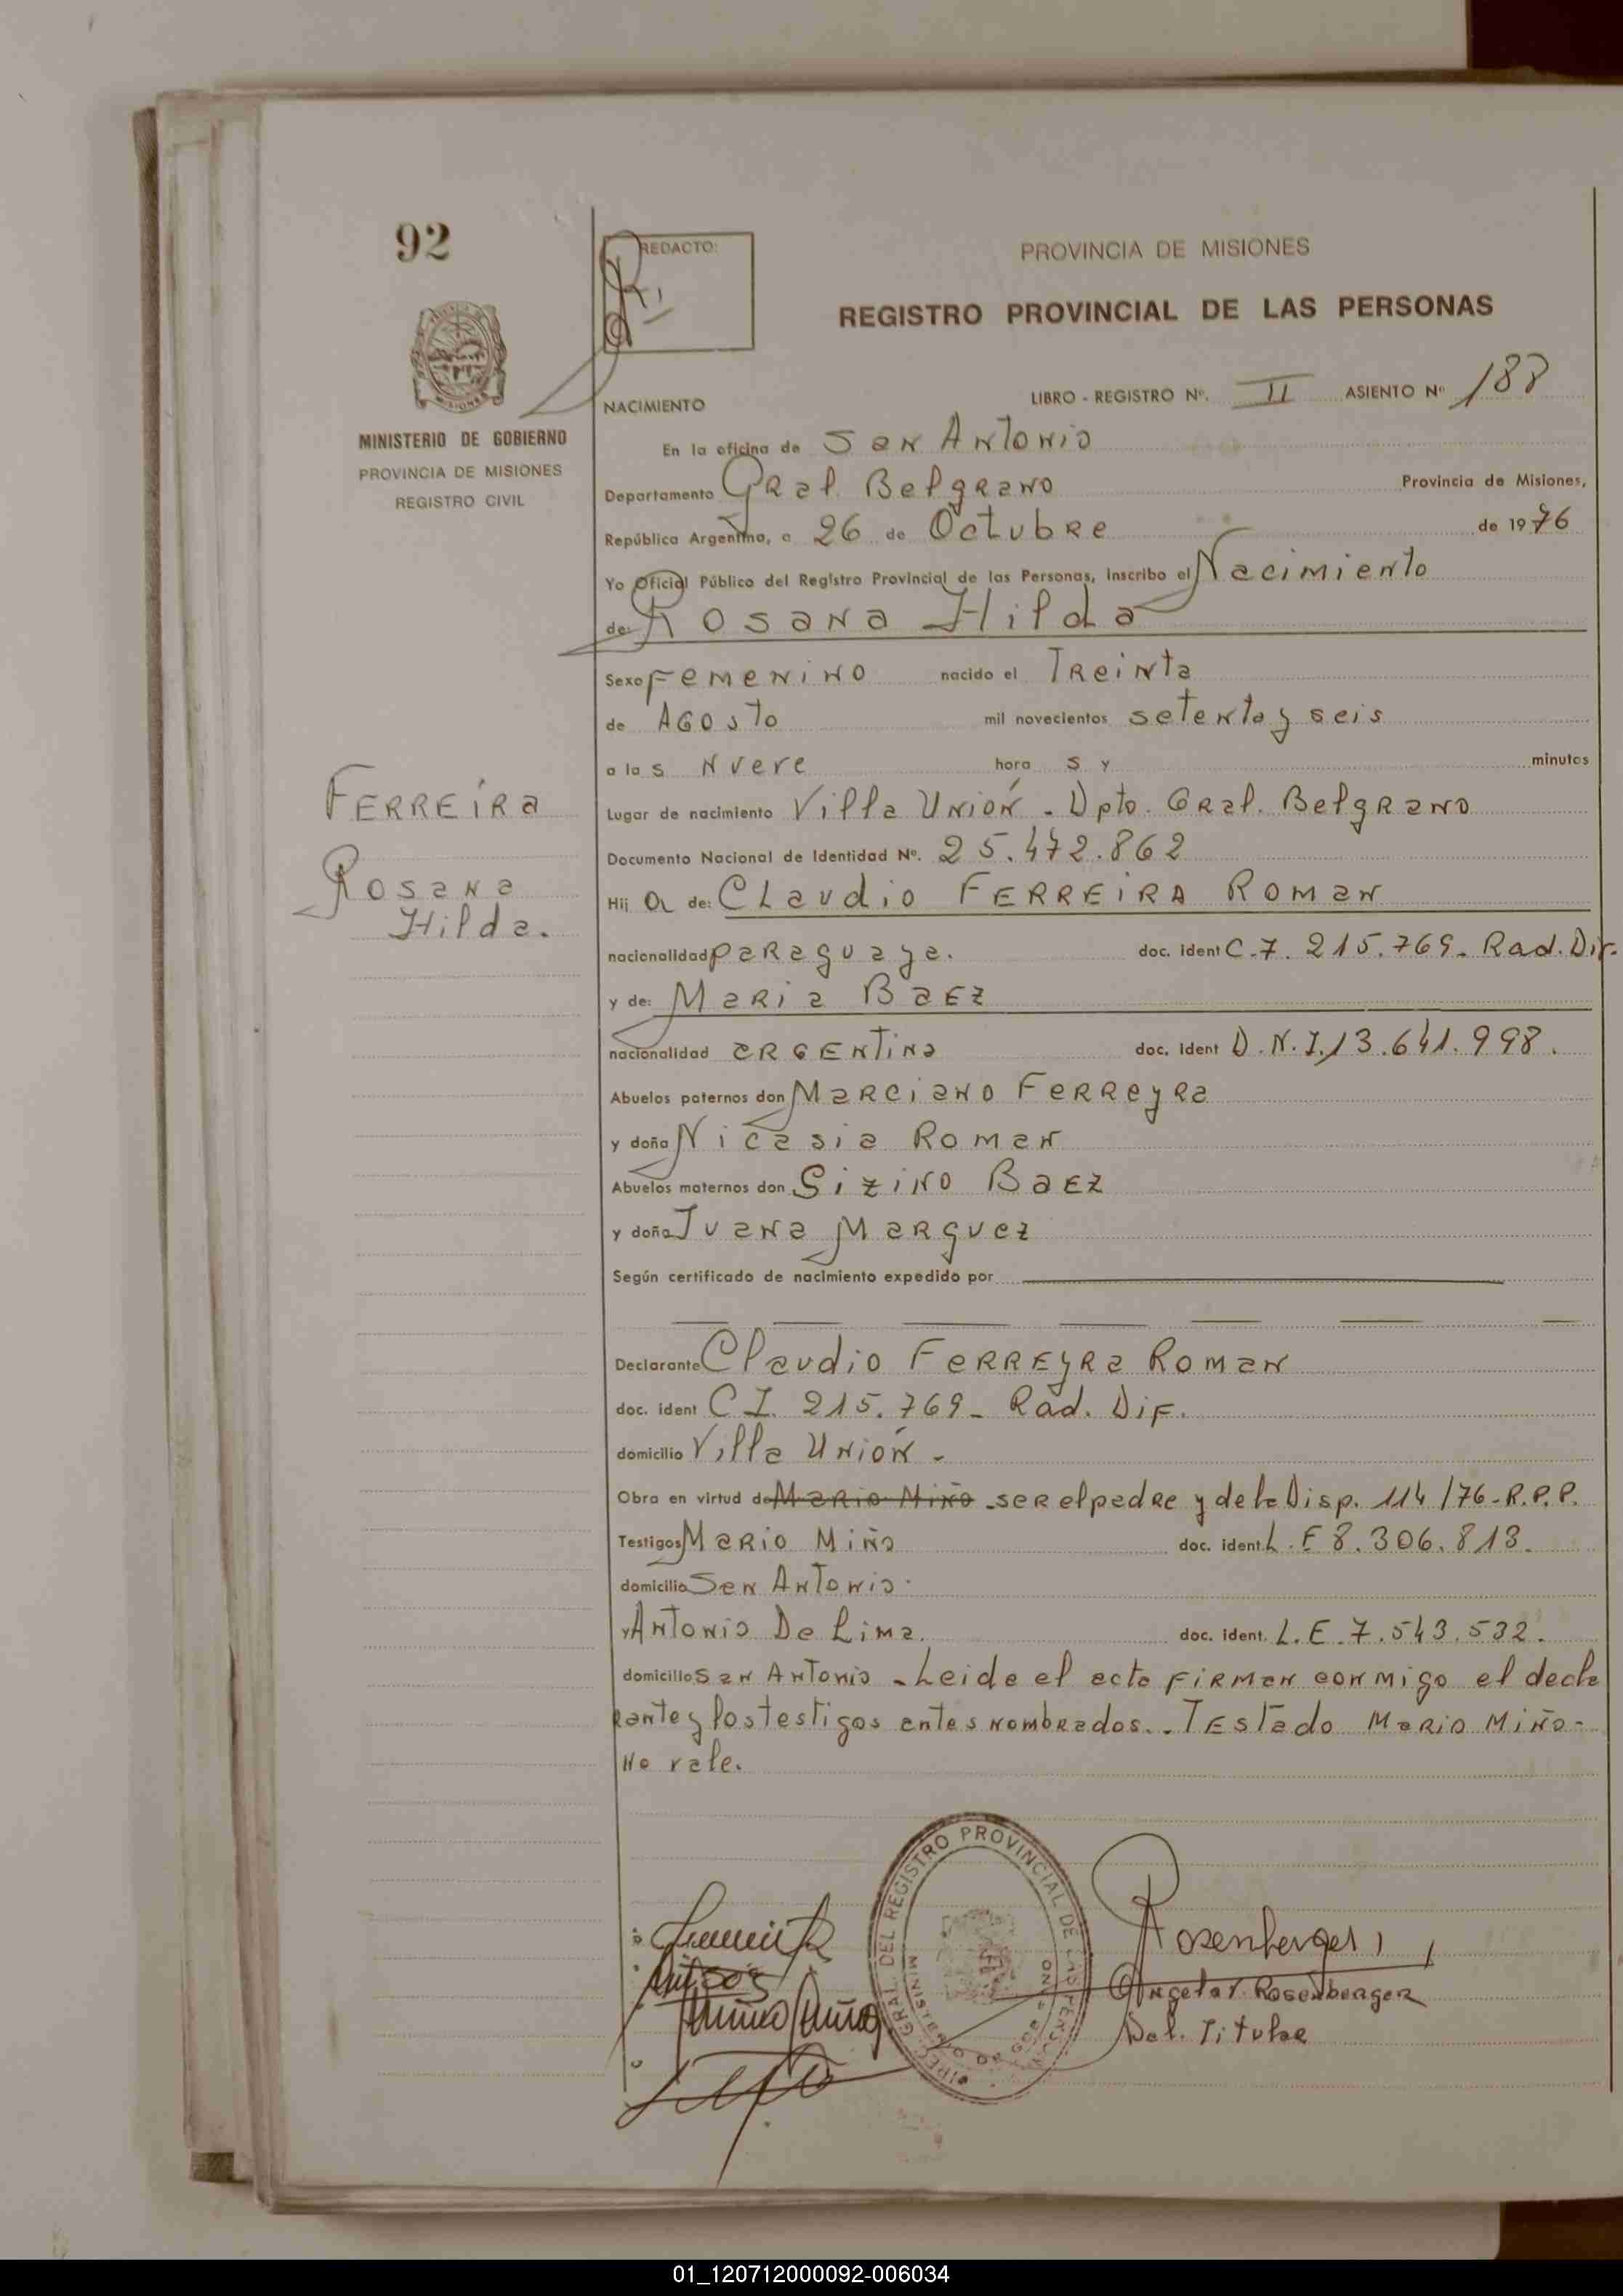 92
REDACTO:
PROVINCIA DE MISIONES
REGISTRO PROVINCIAL DE LAS PERSONAS
MISIONES
MINISTERIO DE GOBIERNO
PROVINCIA DE MISIONES
REGISTRO CIVIL
NACIMIENTO LIBRO - REGISTRO Nº. II ASIENTO Nº 188
En la oficina de San Antonio
Departamento Gral Belgrano Provincia de Misiones,
República Argentina, a 26 de Octubre de 1976
Yo Oficial Público del Registro Provincial de las Personas, inscribo el Nacimiento
de: Rosana Hilda
Sexo Femenino nacido el Treinta
de Agosto mil novecientos setenta y seis
a las Nueve horas y minutos
Lugar de nacimiento Villa Unión - Dpto. Gral. Belgrano
Documento Nacional de Identidad Nº. 25.472.862
FERREIRA
Rosana
Hilda.
Hija de: Claudio FERREIRA ROMAN
nacionalidad paraguaya. doc. ident C.7. 215.769- Rad. Dif.
y de: Maria Baez
nacionalidad argentina doc. ident D.N.I. 13.641.998.
Abuelos paternos don Marciano Ferreyra
y doña Nicasia Roman
Abuelos maternos don Sizino Baez
y doña Juana Marquez
Según certificado de nacimiento expedido por
Declarante Claudio Ferreyra Roman
doc. ident C I. 215.769- Rad. Dif.
domicilio Villa Unión -
Obra en virtud de Mario Miño - ser el padre y de la Disp. 114/76-R.P.P.
Testigos Mario Miño doc. ident L.E 8.306.813.
domicilio San Antonio.
y Antonio De Lima. doc. ident. L.E. 7.543.532.
domicilio San Antonio - Leida el acta firman conmigo el decla
rante y los testigos antes nombrados.- Testado Mario Miño-
No vale.
DIREC. GRAL. DEL REGISTRO PROVINCIAL DE LAS PERSONAS
Rosenberger
Angela V. Rosenberger
Del. Titular
01_120712000092-006034